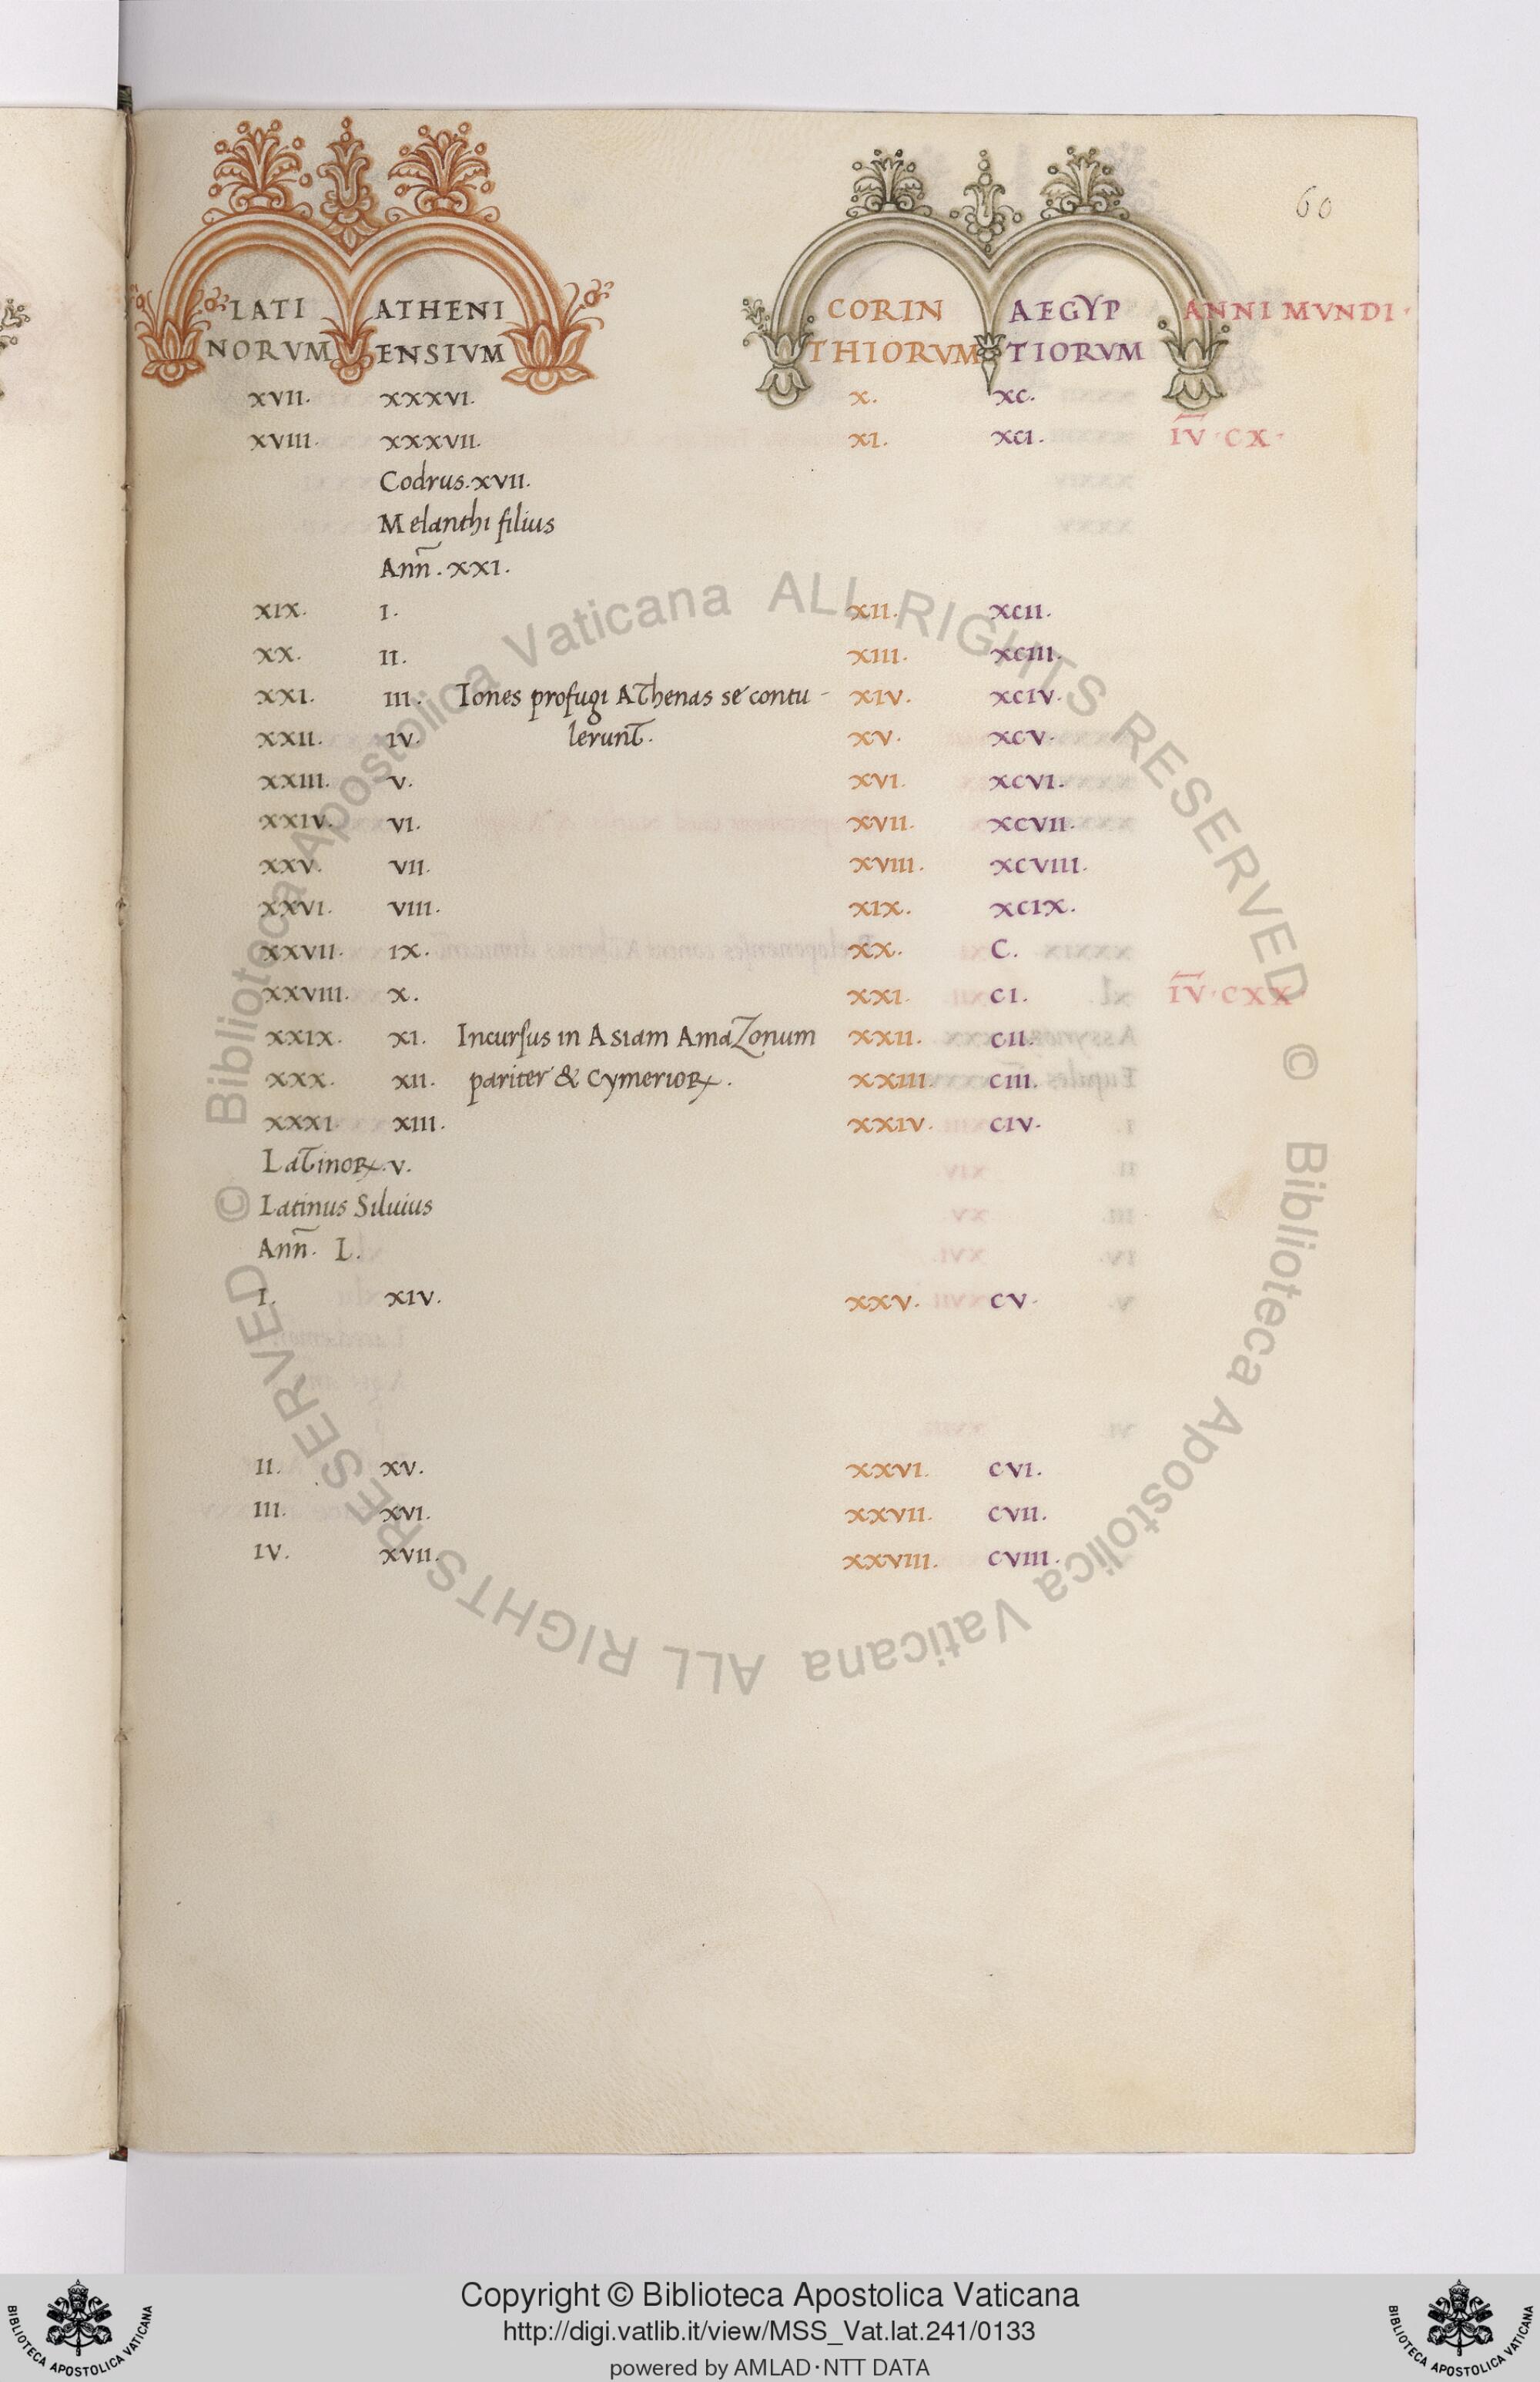 60
LATI ATHENI CORIN AEGYP ANNI MVNDI·
NORVM ENSIVM THIORVM TIORVM
XVII. XXXVI. X. XC.
XVIII. XXXVII. XI. XCI. I͞V·CX·
Codrus.XVII.
Melanthi filius
Añn.XXI.
XIX. I. XII. XCII.
XX. II. XIII. XCIII.
XXI. III. Iones profugi Athenas se contu- XIV. XCIV.
XXII. IV. lerunt. XV. XCV.
XXIII. V. XVI. XCVI.
XXIV. VI. XVII. XCVII.
XXV. VII. XVIII. XCVIII.
XXVI. VIII. XIX. XCIX.
XXVII. IX. XX. C.
XXVIII. X. XXI. CI. I͞V·CXX·
XXIX. XI. Incursus in Asiam Amazonum XXII. CII.
XXX. XII. pariter & CymerioꝜ. XXIII. CIII.
XXXI. XIII. XXIV. CIV.
LatinoꝜ.V.
Latinus Siluius
Añn. L.
I. XIV. XXV. CV.
II. XV. XXVI. CVI.
III. XVI. XXVII. CVII.
IV. XVII. XXVIII. CVIII.
© Biblioteca Apostolica Vaticana ALL RIGHTS RESERVED © Biblioteca Apostolica Vaticana ALL RIGHTS RESERVED
Copyright © Biblioteca Apostolica Vaticana
http://digi.vatlib.it/view/MSS_Vat.lat.241/0133
powered by AMLAD·NTT DATA
BIBLIOTECA APOSTOLICA VATICANA
BIBLIOTECA APOSTOLICA VATICANA